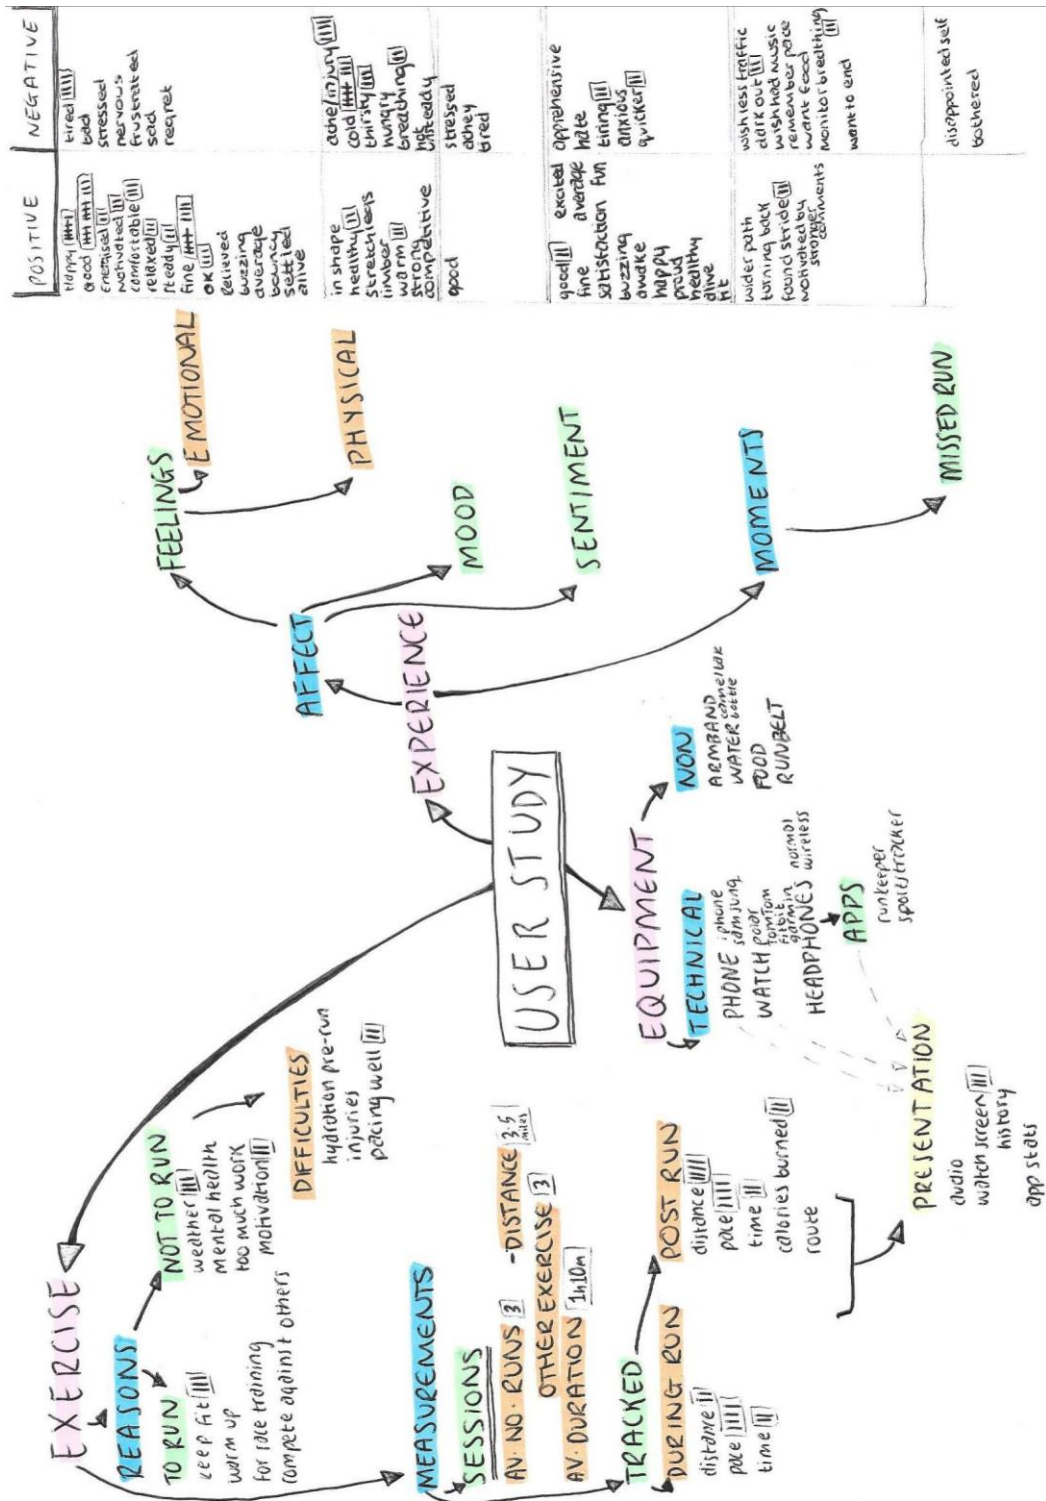 EXERCISE
REASONS
TO RUN
keep fit
warm up
for race training
compete against others
NOT TO RUN
weather
mental health
too much work
motivation
DIFFICULTIES
hydration pre-run
injuries
pacing well
MEASUREMENTS
SESSIONS
AV. NO. RUNS 3
-DISTANCE 3.5 miles
OTHER EXERCISE 3
AV. DURATION 1h10m
TRACKED
DURING RUN
distance
pace
time
POST RUN
distance
pace
time
calories burned
route
PRESENTATION
audio
watch screen
history
app stats
USER STUDY
EQUIPMENT
TECHNICAL
PHONE iphone
samsung
WATCH polar
tomtom
fitbit
garmin
HEADPHONES normal
wireless
APPS
runkeeper
sportstracker
NON
ARMBAND
WATER camelbak
bottle
FOOD
RUNBELT
EXPERIENCE
AFFECT
FEELINGS
EMOTIONAL
PHYSICAL
MOOD
SENTIMENT
MOMENTS
MISSED RUN
POSITIVE
NEGATIVE
Happy
good
Energised
motivated
comfortable
relaxed
steady
fine
OK
relieved
buzzing
average
bouncy
settled
alive
tired
bad
stressed
nervous
frustrated
sad
regret
in shape
healthy
stretch legs
limber
warm
strong
competitive
ache/injury
cold
thirsty
hungry
breathing
hot
unsteady
good
stressed
achey
tired
good excited
fine average
satisfaction fun
buzzing
awake
happy
proud
healthy
alive
fit
apprehensive
hate
tiring
anxious
quicker
wider path
turning back
found stride
motivated by
stranger
comments
wish less traffic
dark out
wish had music
remember pace
want food
monitor breathing
want to end
disappointed self
bothered